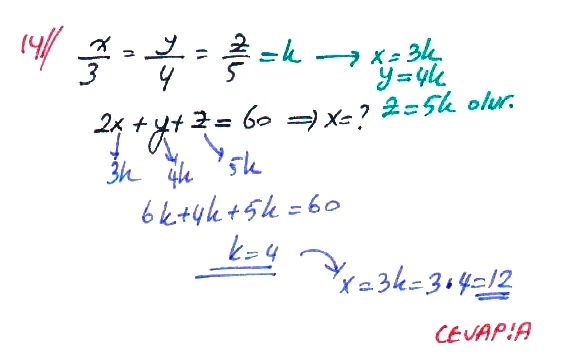 14// x/3 = y/4 = z/5 = k → x = 3k
y = 4k
z = 5k olur.
2x + y + z = 60 ⇒ x = ?
3k 4k 5k
6k + 4k + 5k = 60
k = 4
x = 3k = 3·4 = 12
CEVAP: A